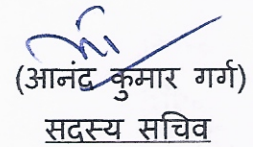 (आनंद कुमार गर्ग)
सदस्य सचिव